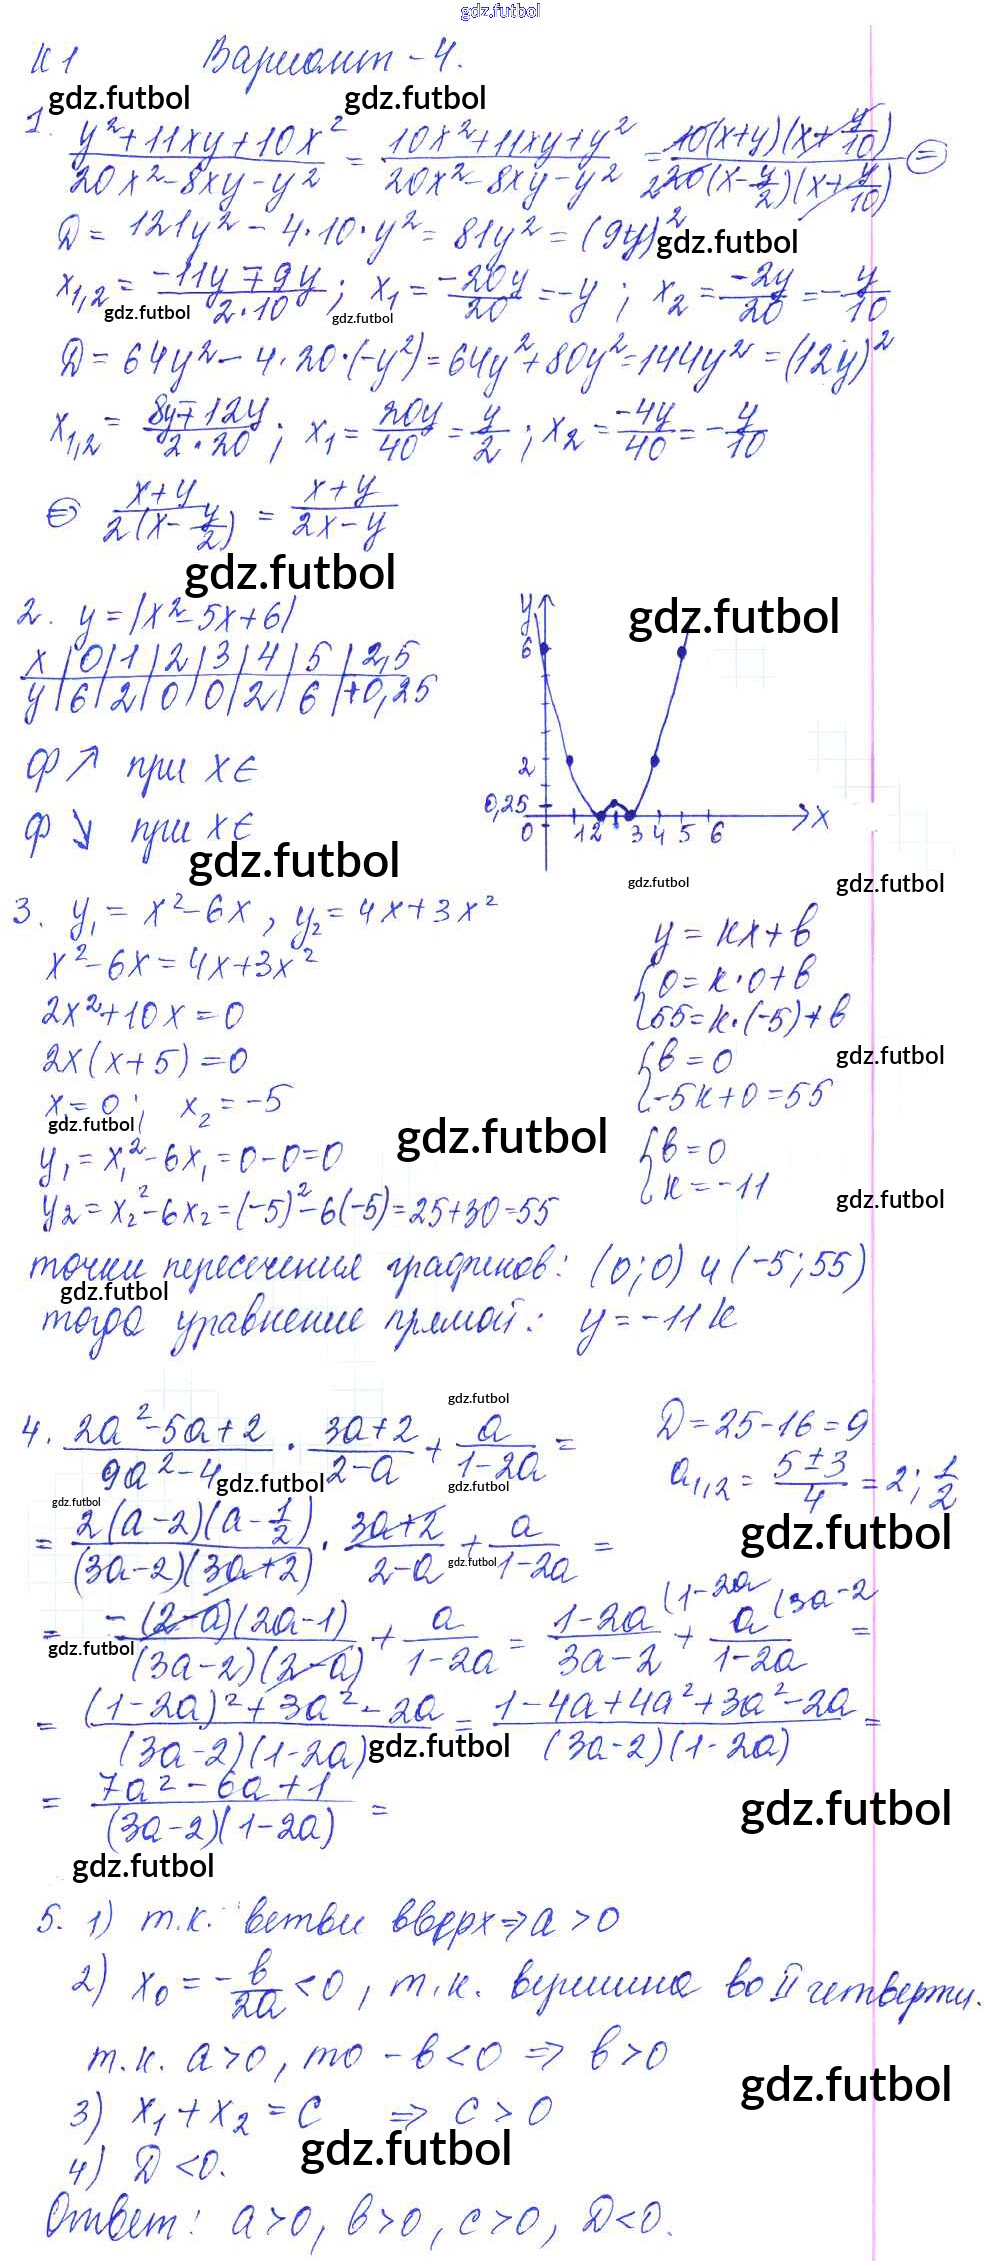 gdz.futbol
К1 Вариант - 4.
gdz.futbol gdz.futbol
1. (y²+11xy+10x²)/(20x²-8xy-y²) = (10x²+11xy+y²)/(20x²-8xy-y²) = 10(x+y)(x+y/10)/2 20(x-y/2)(x+y/10) ⊜
Д = 121y² - 4·10·y² = 81y² = (9y)²
gdz.futbol
x₁,₂ = (-11y∓9y)/(2·10); x₁ = -20y/20 = -y; x₂ = -2y/20 = -y/10
gdz.futbol gdz.futbol
Д = 64y² - 4·20·(-y²) = 64y²+80y² = 144y² = (12y)²
x₁,₂ = (8y∓12y)/(2·20); x₁ = 20y/40 = y/2; x₂ = -4y/40 = -y/10
⊜ (x+y)/(2(x-y/2)) = (x+y)/(2x-y)
gdz.futbol
2. y = |x²-5x+6|
x | 0 | 1 | 2 | 3 | 4 | 5 | 2,5
y | 6 | 2 | 0 | 0 | 2 | 6 | +0,25
Ф ↗ при x ∈
Ф ↘ при x ∈
gdz.futbol
y
gdz.futbol
6
2
0,25
0 1 2 3 4 5 6 x
gdz.futbol gdz.futbol
3. y₁ = x²-6x, y₂ = 4x+3x²
x²-6x = 4x+3x²
2x²+10x = 0
2x(x+5) = 0
x₁ = 0; x₂ = -5
gdz.futbol
y₁ = x₁²-6x₁ = 0-0 = 0
y₂ = x₂²-6x₂ = (-5)²-6(-5) = 25+30 = 55
y = kx+b
{0 = k·0+b
55 = k·(-5)+b
gdz.futbol
{b = 0
-5k+0 = 55
gdz.futbol
{b = 0
k = -11
gdz.futbol
точки пересечения графиков: (0;0) и (-5;55)
gdz.futbol
тогда уравнение прямой: y = -11k
gdz.futbol
4. (2a²-5a+2)/(9a²-4) · (3a+2)/(2-a) + a/(1-2a) =
Д = 25-16 = 9
a₁,₂ = (5±3)/4 = 2; 1/2
gdz.futbol gdz.futbol
gdz.futbol
= 2(a-2)(a-1/2)/((3a-2)(3a+2)) · (3a+2)/(2-a) + a/(1-2a) =
gdz.futbol gdz.futbol
= -(2-a)(2a-1)/((3a-2)(2-a)) + a/(1-2a) = (1-2a)/(3a-2) (1-2a + a/(1-2a) (3a-2 =
gdz.futbol
= ((1-2a)²+3a²-2a)/((3a-2)(1-2a)) = (1-4a+4a²+3a²-2a)/((3a-2)(1-2a)) =
gdz.futbol
= (7a²-6a+1)/((3a-2)(1-2a)) =
gdz.futbol
gdz.futbol
5. 1) т.к. ветви вверх ⇒ a > 0
2) x₀ = -b/2a < 0, т.к. вершина во II четверти.
т.к. a>0, то -b<0 ⇒ b>0
gdz.futbol
3) x₁+x₂ = c ⇒ c > 0
gdz.futbol
4) Д < 0.
Ответ: a>0, b>0, c>0, Д<0.